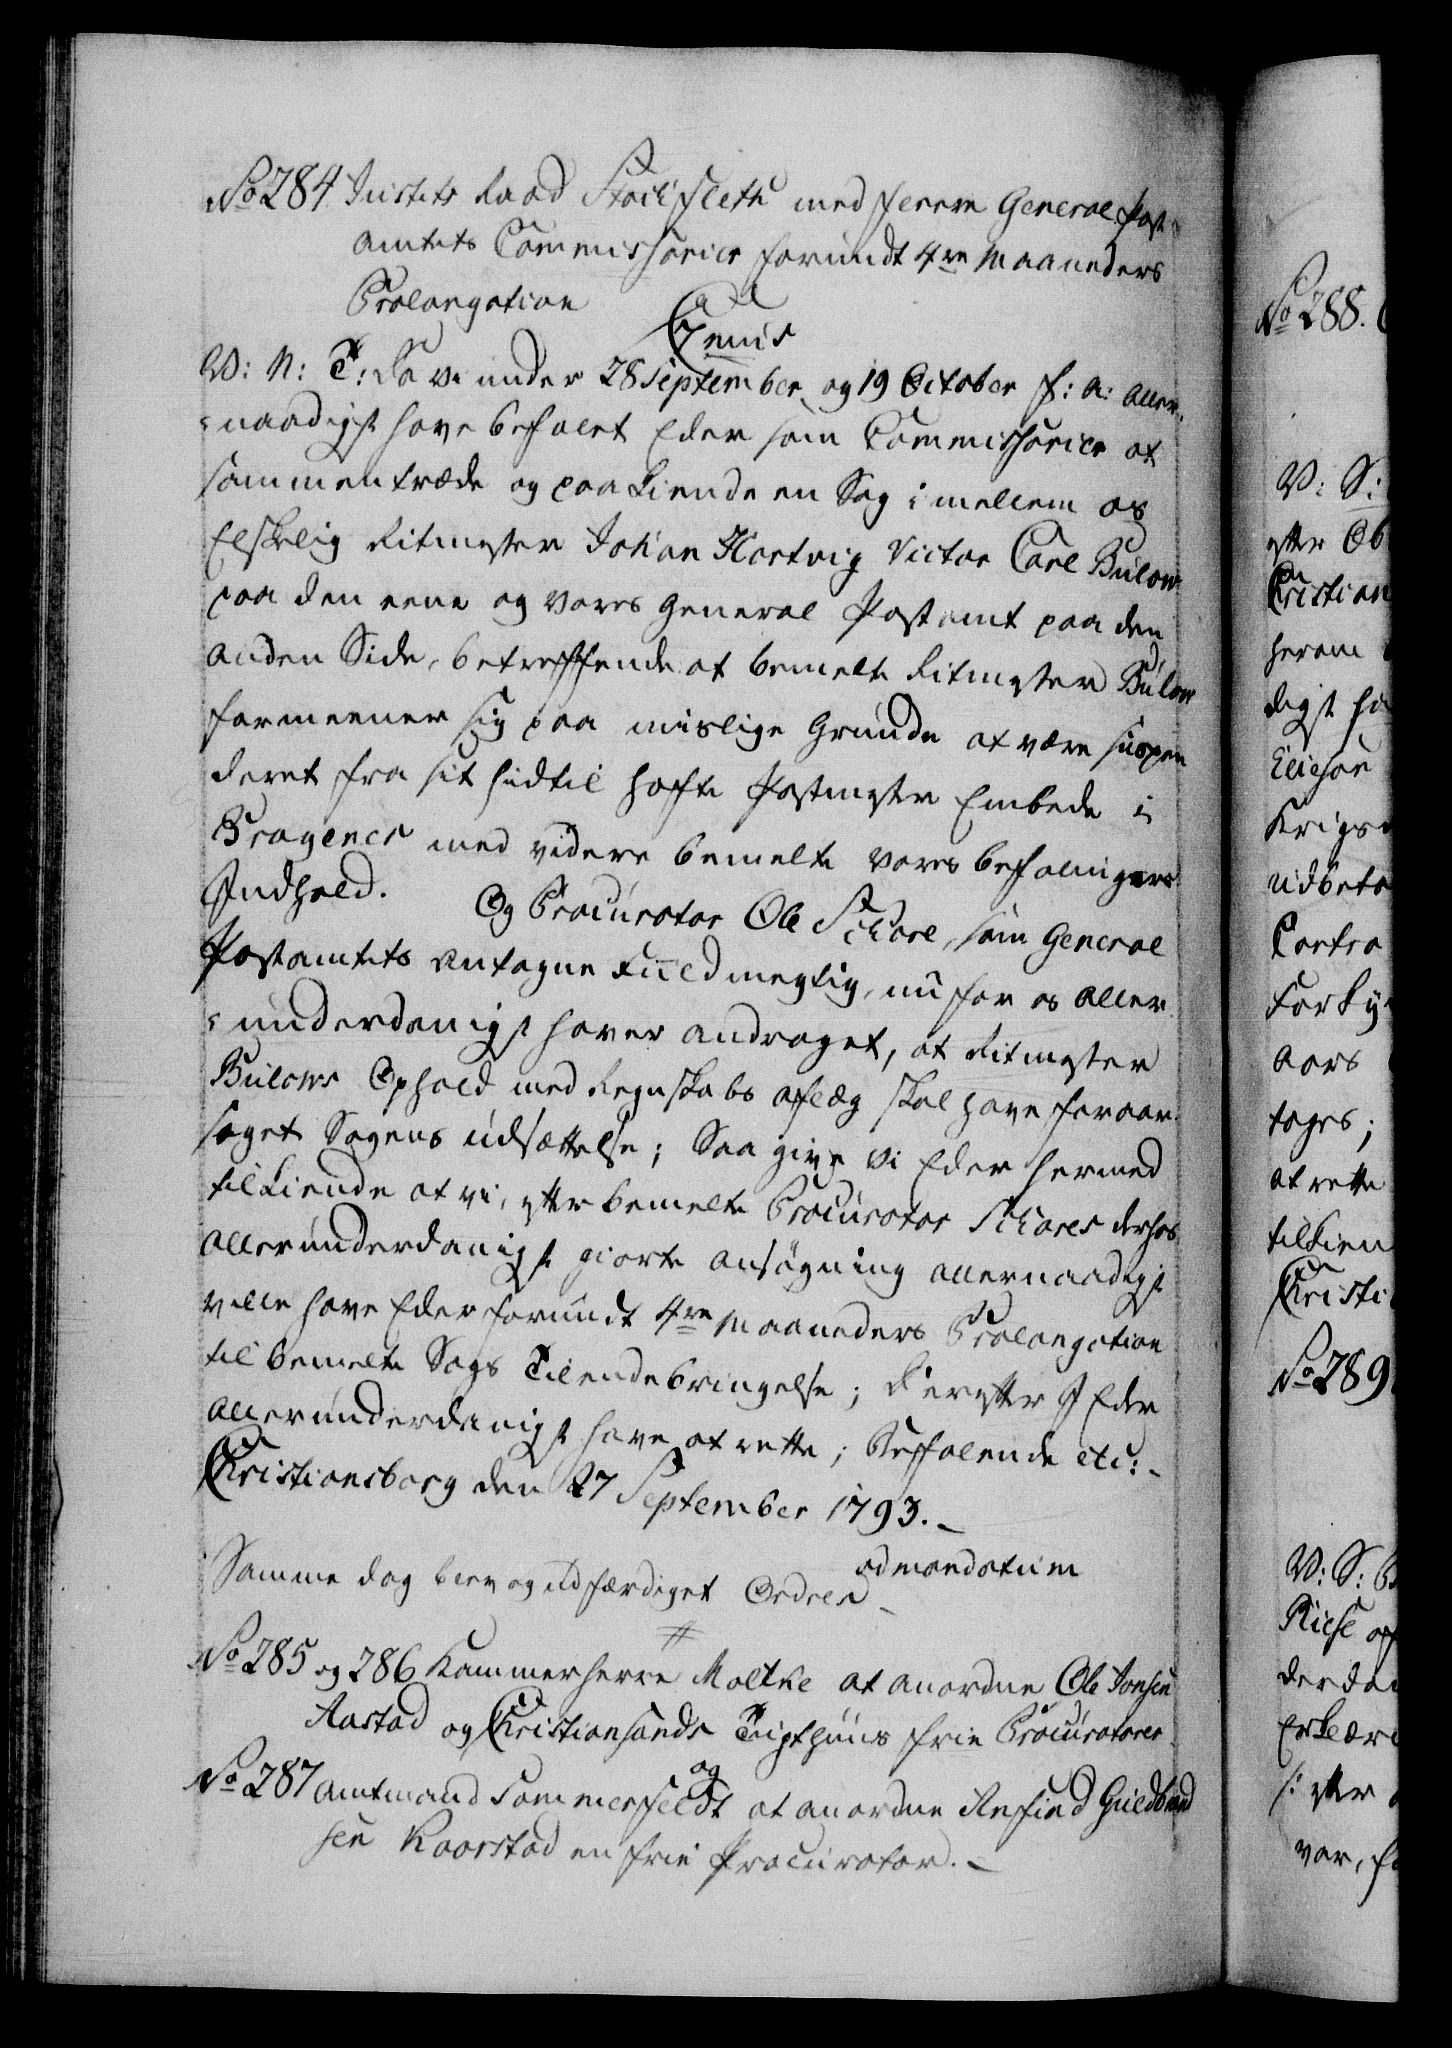 No 284 Justits Raad Stochfleth med fleere General Post
Amtets Commissorier forundt 4re Maaneders
Prolongation
Genis
V: N: T: Da vi under 28 September og 19 October f: a: aller-
=naadigst have befalet Eder som Commissarier at
sammentræde og paakiende en Sag imellem os
elskelig Ritmester Johan Hartvig Victor Carl Bülow
paa den eene og vores General Postamt paa den
anden Side, betreffende at bemelte Ritmester Bülow
formeener sig paa mislige Grunde at være suspen
deret fra sit hidtil hafte Postmester Embede i
Bragenes med videre bemelte vores befalingers
Indhold. Og Procurator Ole Schare, som General
Postamtets antagne Fuldmegtig, nu for os aller
=underdanigst haver andraget, at Ritmester
Bülows Ophold med Regnskabs aflæg skal have foraar
saget Sagens udsættelse; Saa give vi Eder hermed
tilkiende at vi, efter bemelte Procurator Schares derhos
allerunderdanigst giorte ansøgning allernaadigst
ville have Eder forundt 4re Maaneders Prolongation
til bemelte Sags Tilendebringelse; Derefter I Eder
allerunderdanigst have at rette; Befalende etc:
Christiansborg den 27 September 1793.
ad mandatum
Samme dag blev og udfærdiget Ordres
No 285 og 286 Kammerherre Moltke at anordne Ole Jonsen
Aastad og Christiansands Tugthuus frie Procuratorer
No 287 Amtmand Sommerfeldt og at anordne Anfind Guldbrand
sen Kaarstad en frie Procurator.
No 288.
V: S:
efter Ob
Christian
herom
digst ha
Ellesøn
Krigs
udbeta
Contra
Forky
aars
tages;
at rette
tilkien
Christi
No 289
V: S:
Riese af
derdan
Erklæri
s: efter
var, fo